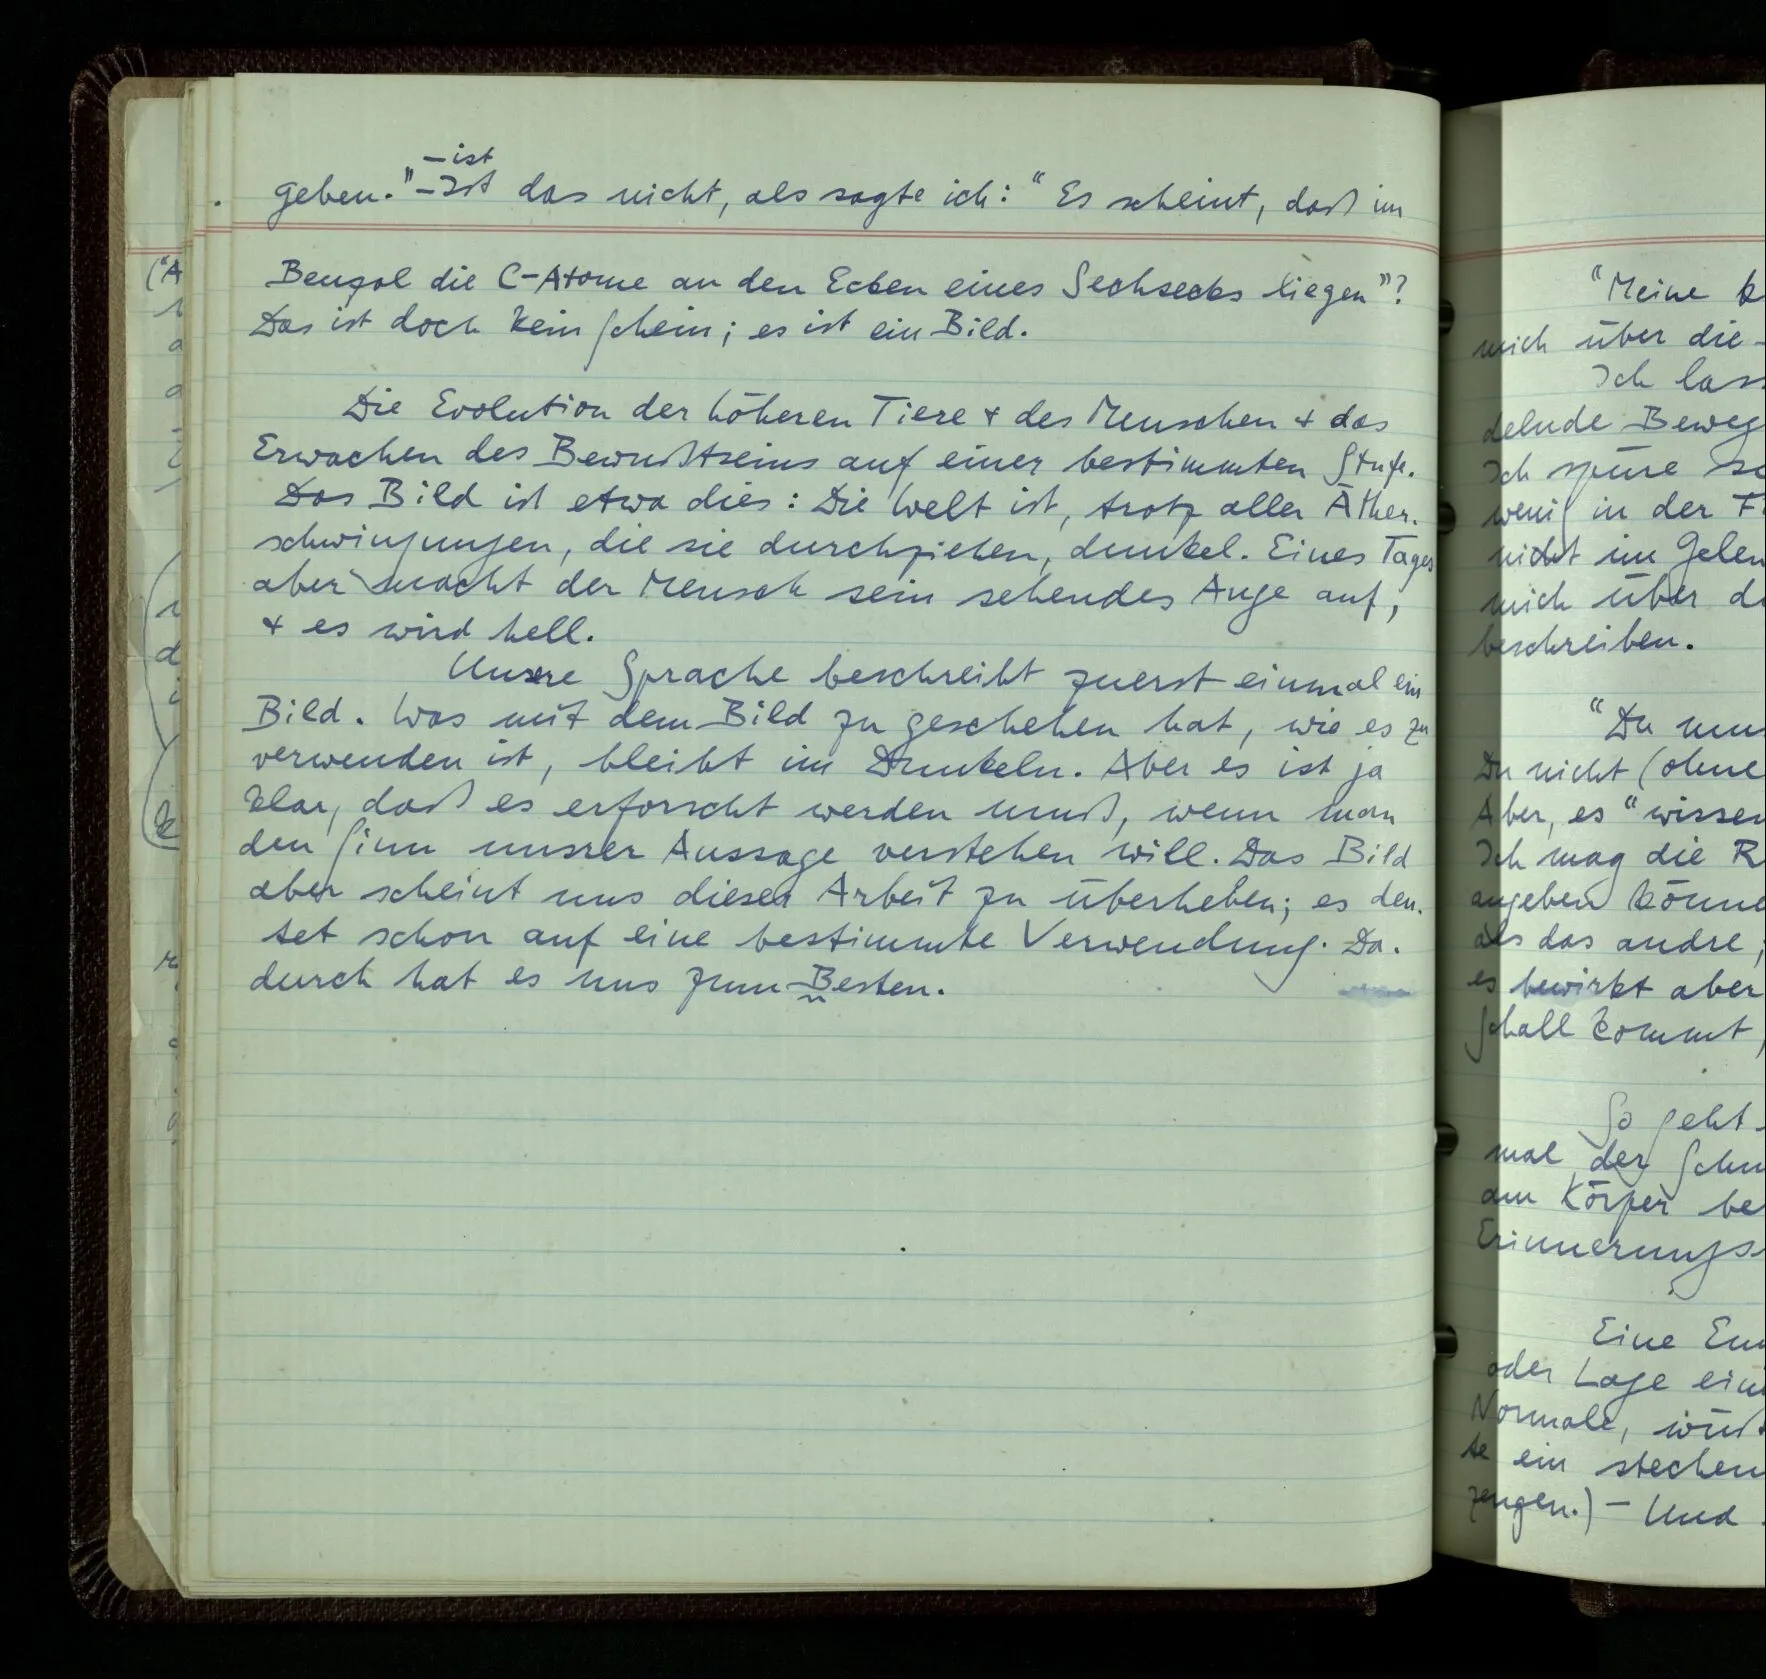 – ist
geben." – Ist das nicht, als sagte ich: "Es scheint, daß im
Benzol die C-Atome an den Ecken eines Sechsecks liegen"?
Das ist doch kein Schein; es ist ein Bild.
Die Evolution der höheren Tiere & des Menschen & das
Erwachen des Bewußtseins auf einer bestimmten Stufe.
Das Bild ist etwa dies: Die Welt ist, trotz aller Äther-
schwingungen, die sie durchziehen, dunkel. Eines Tages
aber macht der Mensch sein sehendes Auge auf,
& es wird hell.
Unsere Sprache beschreibt zuerst einmal ein
Bild. Was mit dem Bild zu geschehen hat, wie es zu
verwenden ist, bleibt im Dunkeln. Aber es ist ja
klar, daß es erforscht werden muß, wenn man
den Sinn unsrer Aussage verstehen will. Das Bild
aber scheint uns dieser Arbeit zu überheben; es deu-
tet schon auf eine bestimmte Verwendung. Da-
durch hat es uns zum Besten.
"Meine
mich über die
Ich
delnde
Ich spüre
wenig in der
nicht im
mich über
beschreiben.
"Du
Du nicht (ohne
Aber, es "wissen
Ich mag die
angeben
als das andre;
es bewirkt aber
Schall kommt,
So geht
mal der
am Körper
Eine
oder Lage
Normale,
te ein
zeugen.) – Und